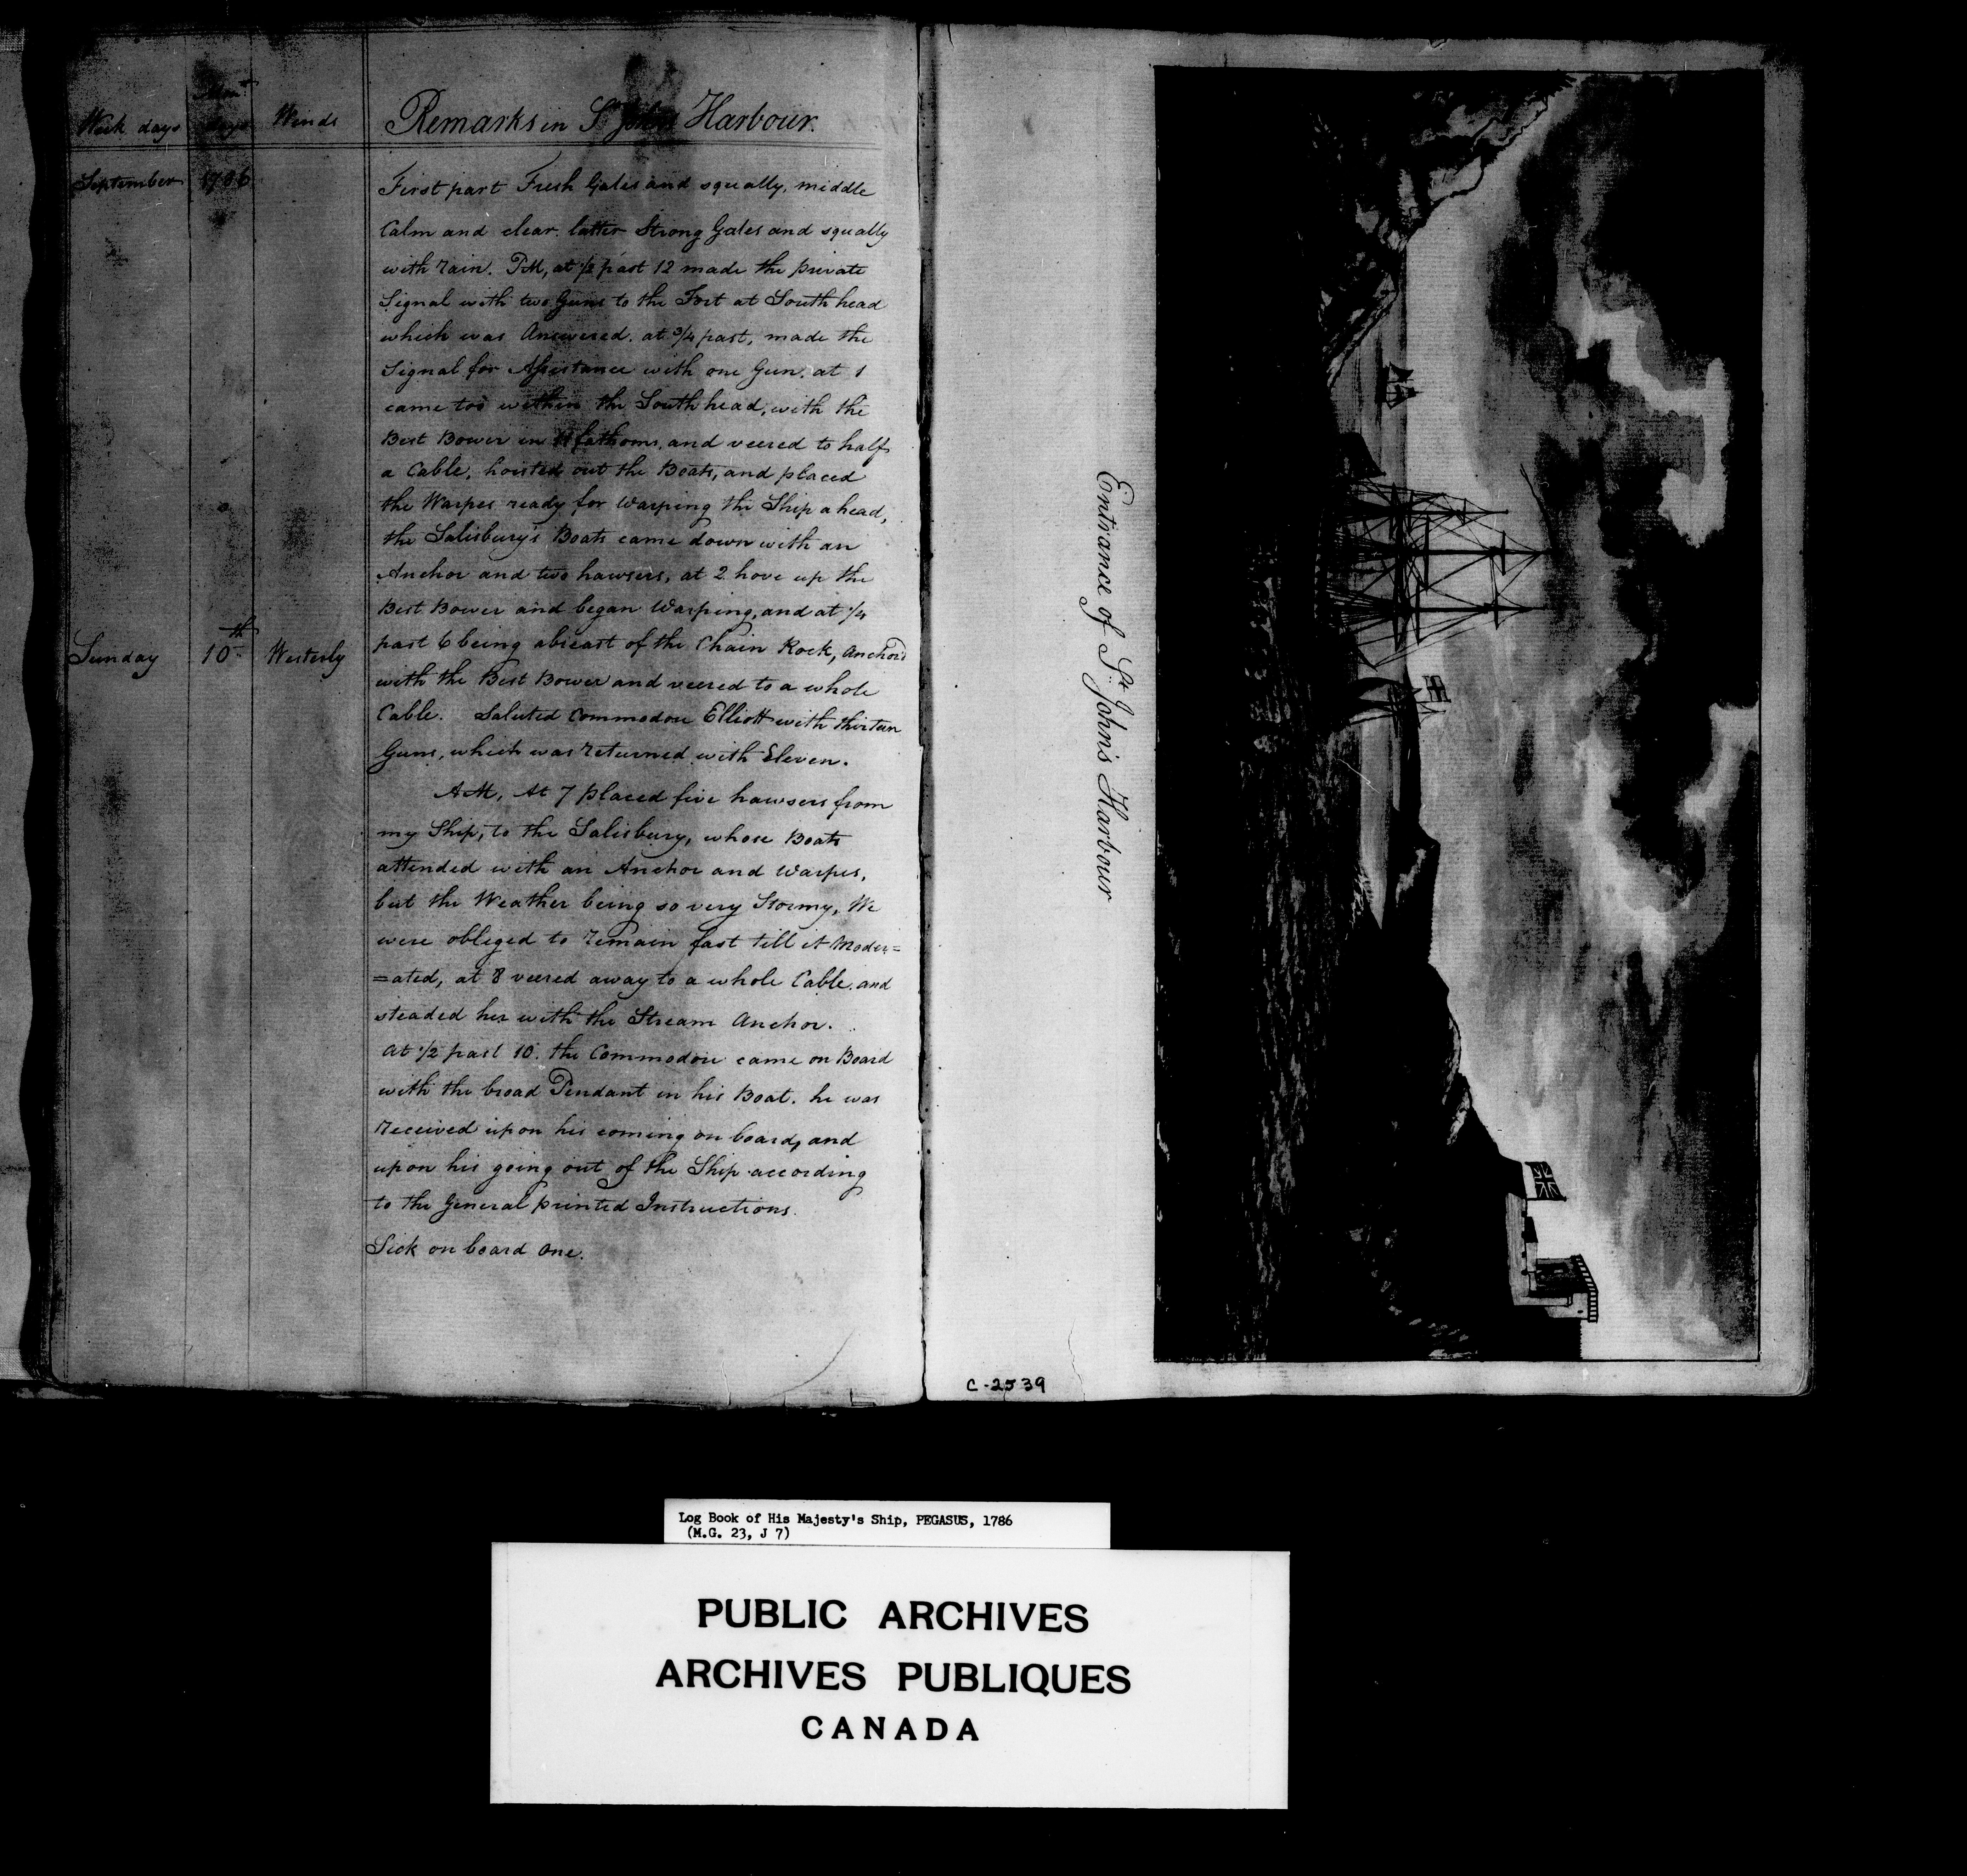 Week days Mon.t days Winds Remarks in St Johns Harbour.
September 1786
First part Fresh Gales and squally, middle
Calm and clear. latter Strong Gales and squally
with rain. PM, at 1/2 past 12 made the private
Signal with two Guns to the Fort at South head
which was Answered. at 3/4 past, made the
Signal for Assistance with one Gun. at 1
came too within the South head, with the
Best Bower in fathoms, and veered to half
a Cable, hoisted out the Boats, and placed
the Warpes ready for Warping the Ship a head,
the Salisbury's Boats came down with an
Anchor and two hawsers, at 2 hove up the
Best Bower and began Warping, and at 1/4
past 6 being abreast of the Chain Rock, Anchor'd
Sunday 10th Westerly
with the Best Bower and veered to a whole
Cable. Saluted Commodore Elliott with thirteen
Guns, which was returned with Eleven.
AM, At 7 placed five hawsers from
my Ship, to the Salisbury, whose Boats
attended with an Anchor and Warpes,
but the Weather being so very Stormy, We
were obliged to remain fast till it Moder=
=ated, at 8 veered away to a whole Cable. and
steaded her with the Stream Anchor.
At 1/2 past 10. the Commodore came on Board
with the broad Pendant in his Boat. he was
received upon his coming on board, and
upon his going out of the Ship according
to the General printed Instructions.
Sick on board One.
Entrance of St. John's Harbour
C-2539
Log Book of His Majesty's Ship, PEGASUS, 1786
(M.G. 23, J 7)
PUBLIC ARCHIVES
ARCHIVES PUBLIQUES
CANADA